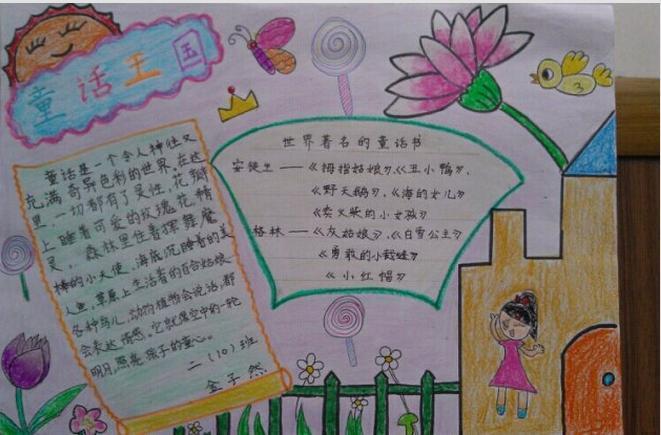 童话王国
童话是一个令人神往又
充满奇异色彩的世界。在这
里，一切都有了灵性，花瓣
上睡着可爱的玫瑰花精
灵，森林里住着挥舞魔
棒的小天使，海底沉睡着的美
人鱼，草原上生活着的百合姑娘…
各种鸟儿，动物植物会说话，都
会表达情感。它就像空中的一轮
明月，照亮孩子的童心。
二（10）班
金子然
世界著名的童话书
安徒生——《拇指姑娘》、《丑小鸭》、
《野天鹅》、《海的女儿》
《卖火柴的小女孩》
格林——《灰姑娘》、《白雪公主》
《勇敢的小裁缝》
《小红帽》